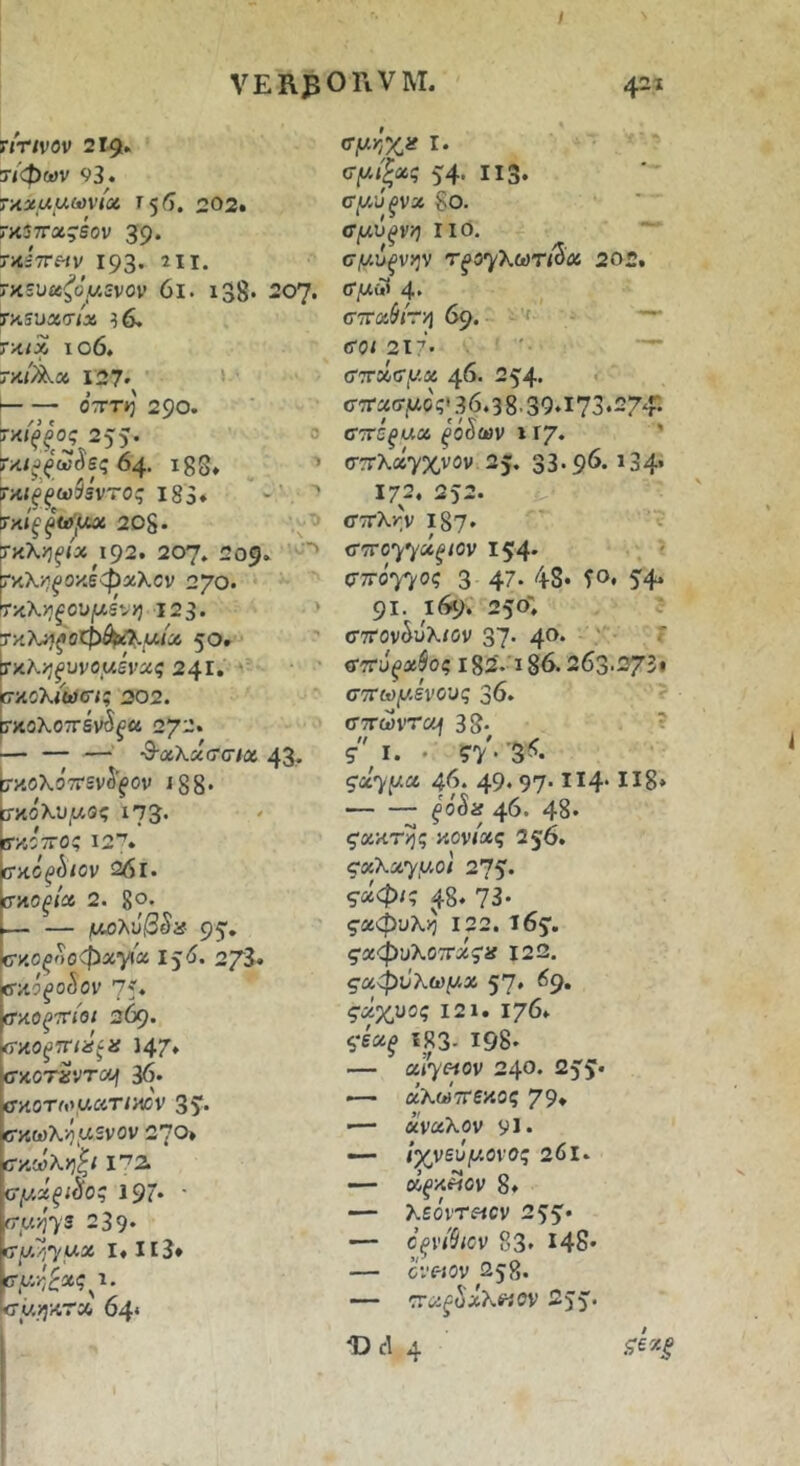 VERBORVM. 421
σίτινον 219.
σίφων 93.
σκαμμωνία 156. 202.
σκέπαςεον 39.
σκέπειν 193. 211.
σκευαζόμενον 61. 138. 207.
σκευασία 36.
σκιᾷ 106.
σκίλλα 127.
—— ὀπτὴ 290.
σκίῤῥος 255.
σκιῤῥώδες 64. 188.
σκιῤῥωθέντος 183.
σκίῤῥωμα 208.
σκληρία 192. 207. 209.
σκληροκέφαλον 270.
σκληρουμένη 123.
σκληροφθαλμία 50.
σκληρυνομένας 241.
σκολίωσις 202.
σκολοπένδρα 272.
——— θαλάσσια 43.
σκολόπενδρον 188.
σκόλυμος 173.
σκόπος 127.
σκόρδιον 261.
σκορία 2. 80.
—— μολύβδȣ 95.
σκοροδοφαγία 156. 273.
σκόροδον 75.
σκορπίοι 269.
σκορπιȣ́ρȣ 147.
σκοτȣ͂νται 36.
σκοτωματικόν 35.
σκωλήμενον 270.
σκώληξι 172
σμάριδος 197.
σμῆγε 239.
σμῆγμα 1. 113.
σμήξας 1.
σμηκτὰ 64.
σμήχȣ 1.
σμίξας 54. 113.
σμύρνα 80.
σμύρνη 110.
σμύρνην τρογλωτίδα 202.
σμῶ 4.
σπαθίτη 69.
σοι 217.
σπάσμα 46. 254.
σπασμός 36.38.39.173.274.
σπέρμα ῥόδων 117.
σπλάγχνον 25. 33. 96. 134.
172. 252.
σπλὴν 187.
σπογγάριον 154.
σπόγγος 3 47. 48. 50. 54.
91. 169. 250.
σπονδύλιον 37. 40.
σπύραθος 182. 186. 263.273.
σπωμένους 36.
σπῶνται 38.
ς″ 1. ςγ΄. 36.
ςάγμα 46. 49. 97. 114. 118.
—— ῥόδȣ 46. 48.
ςακτῆς κονίας 256.
ςαλαγμοὶ 275.
ςάφις 48. 73.
ςαφυλὴ 122. 165.
ςαφυλοπάςȣ 122.
ςαφύλωμα 57. 69.
ςάχυος 121. 176.
ςέαρ 183. 198.
— αἴγειον 240. 255.
— ἀλώπεκος 79.
— ἄναλον 91.
— ἰχνεύμονος 261.
— ἄρκειον 8.
— λεόντειον 255.
— ὀρνίθιον 83. 148.
— ὄνειον 258.
— παρδάλειον 255.
Dd 4 ςέαρ